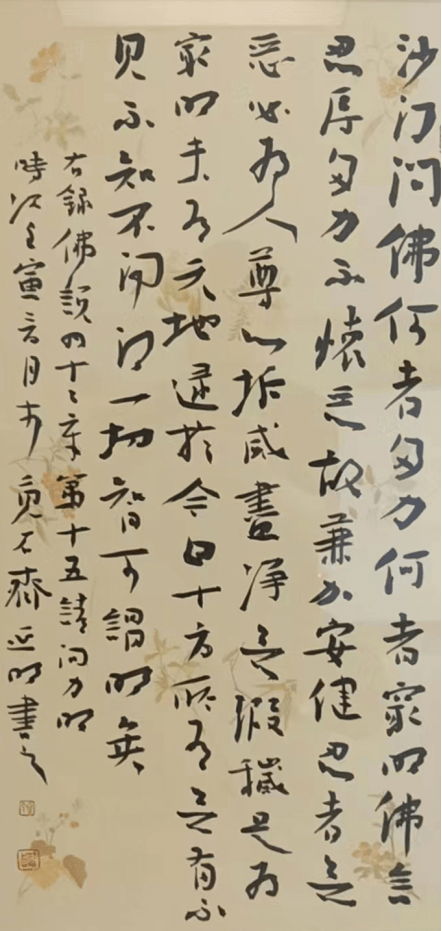 沙门问佛何者多力何者最明佛言
忍辱多力不怀恶故兼加安健忍者无
恶必为人尊心垢灭尽净无瑕秽是为
最明未有天地逮于今日十方所有无有不
见不知不闻得一切智可谓明矣
右录佛说四十二章第十五请问力明
时次壬寅 月 贞石斋 正明书之